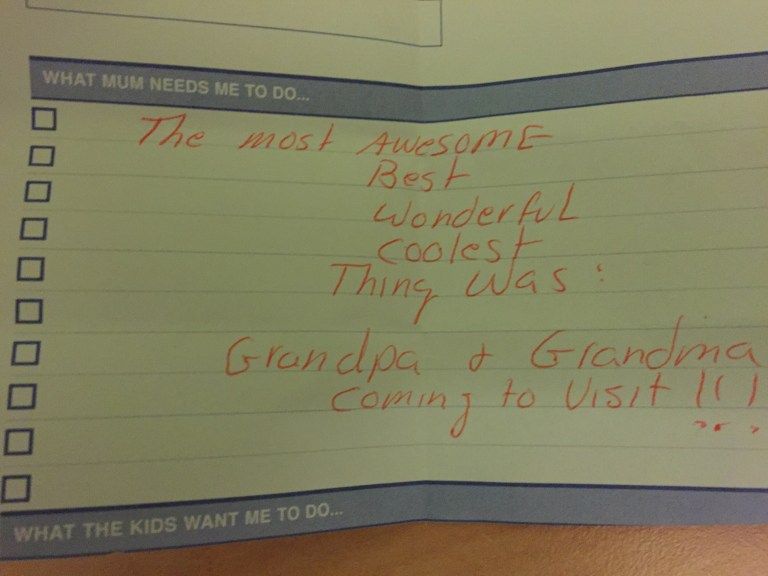 WHAT MUM NEEDS ME TO DO...
The most AWESOME
Best
Wonderful
Coolest
Thing Was:
Grandpa & Grandma
Coming to Visit !!!
WHAT THE KIDS WANT ME TO DO...